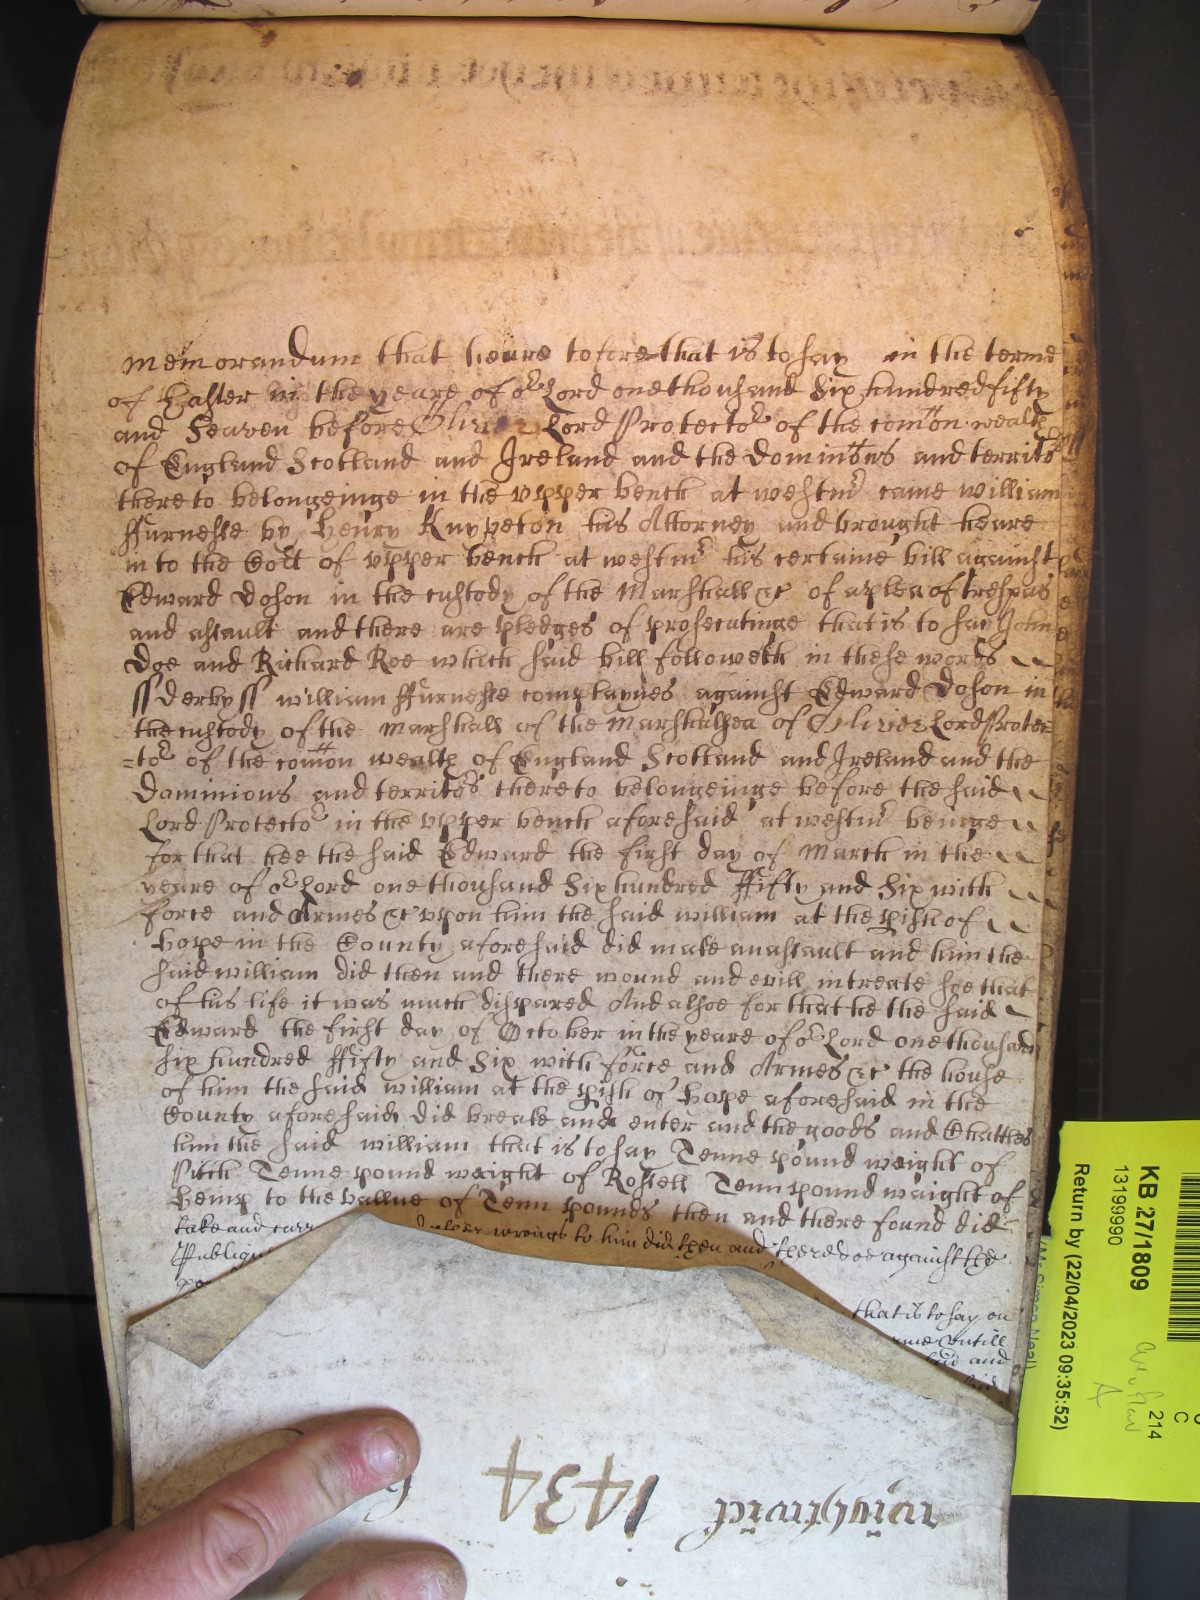 Memorandum that heare tofore that is to say in the terme
of Easter in the yeare of our Lord one thousand Six hundred fifty
and Seaven before Oliver Lord Protector of the comon wealth
of England Scotland and Ireland and the Dominions and territors
thereto belongeinge in the upper bench at westmr came William
ffurnesse by Henry Knypeton his Attorney and brought heare
in to the Cort of upper bench at westmr his certaine bill against
Edward Doson in the custody of the Marshall &c of a plea of trespas
and assault and there are pledges of prosecutinge that is to say John
Doe and Richard Roe which said bill followeth in these words
ss Derby ss william ffurnesse complaynes against Edward Doson in
the custody of the Marshall of the Marshalsea of Oliver Lord Protec
=tor of the comon wealth of England Scotland and Ireland and the
Dominions and territors thereto belongeinge before the said
Lord Protector in the upper bench aforesaid at westmr beinge
for that hee the said Edward the first day of March in the
yeare of our Lord one thousand Six hundred ffifty and Six with
force and Armes &c upon him the said william at the pish of
hope in the County aforesaid did make an assault and him the
said william did then and there wound and evill intreate soe that
of his life it was much dispared And alsoe for that he the said
Edward the first day of October in the yeare of our Lord one thousand
Six hundred ffifty and Six with force and Armes &c the house
of him the said william at the pish of hope aforesaid in the
County aforesaid did breake and enter and the goods and Chattles
him the said william that is to say Tenne pound weight of
Pitch Tenne pound weight of Rossell Tenn pound waight of
hemp to the vallue of Tenn pounds then and there found did
take and carr wrongs to him did then and there doe against the
Publique
that is to say on
untill
and
1434
KB 27/1809
13199990
Return by (22/04/2023 09:35:52)
214
C
(Mr Simon Neal)